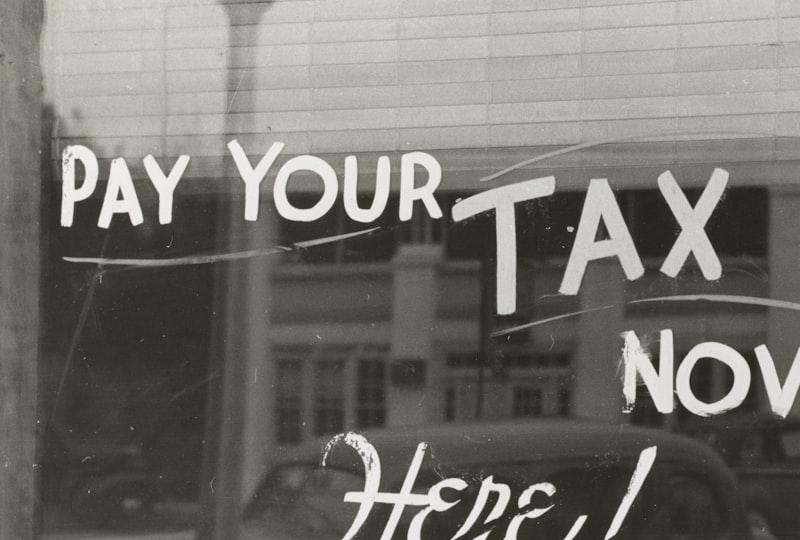 PAY YOUR TAX
NOW
Here!